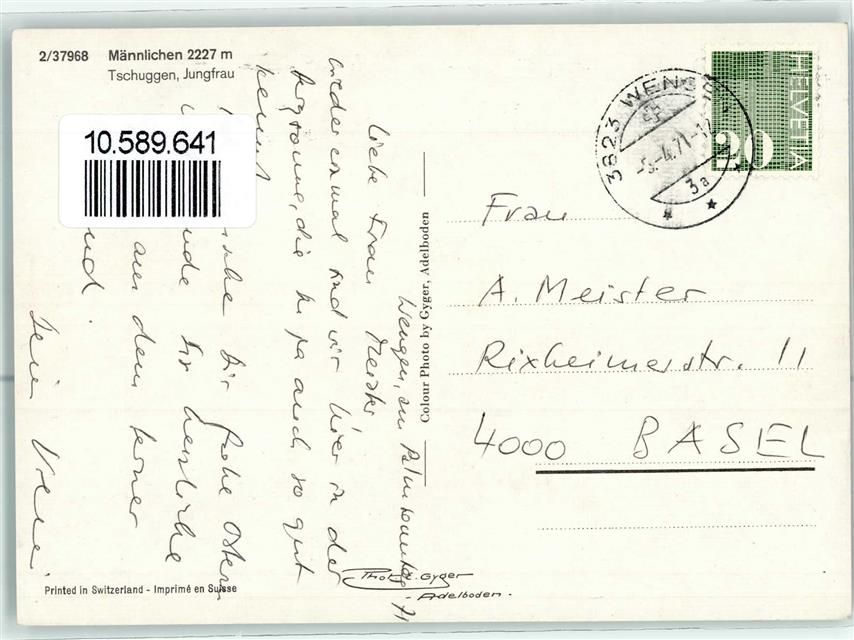 2/37968 Männlichen 2227 m
Tschuggen, Jungfrau
10.589.641
Wengen, am Palmsonntag 71
Liebe Frau Meister
wieder einmal sind wir hier in der
Bergsonne, die Du ja auch so gut
kennst.
Dir frohe Ostern
herzliche
aus dem Berner
Colour Photo by Gyger, Adelboden
3823 WENGEN
-5.-4.71-12
3a
HELVETIA
20
Frau
A. Meister
Rixheimerstr. 11
4000 BASEL
Printed in Switzerland - Imprimé en Suisse
Photo E. Gyger
- Adelboden -